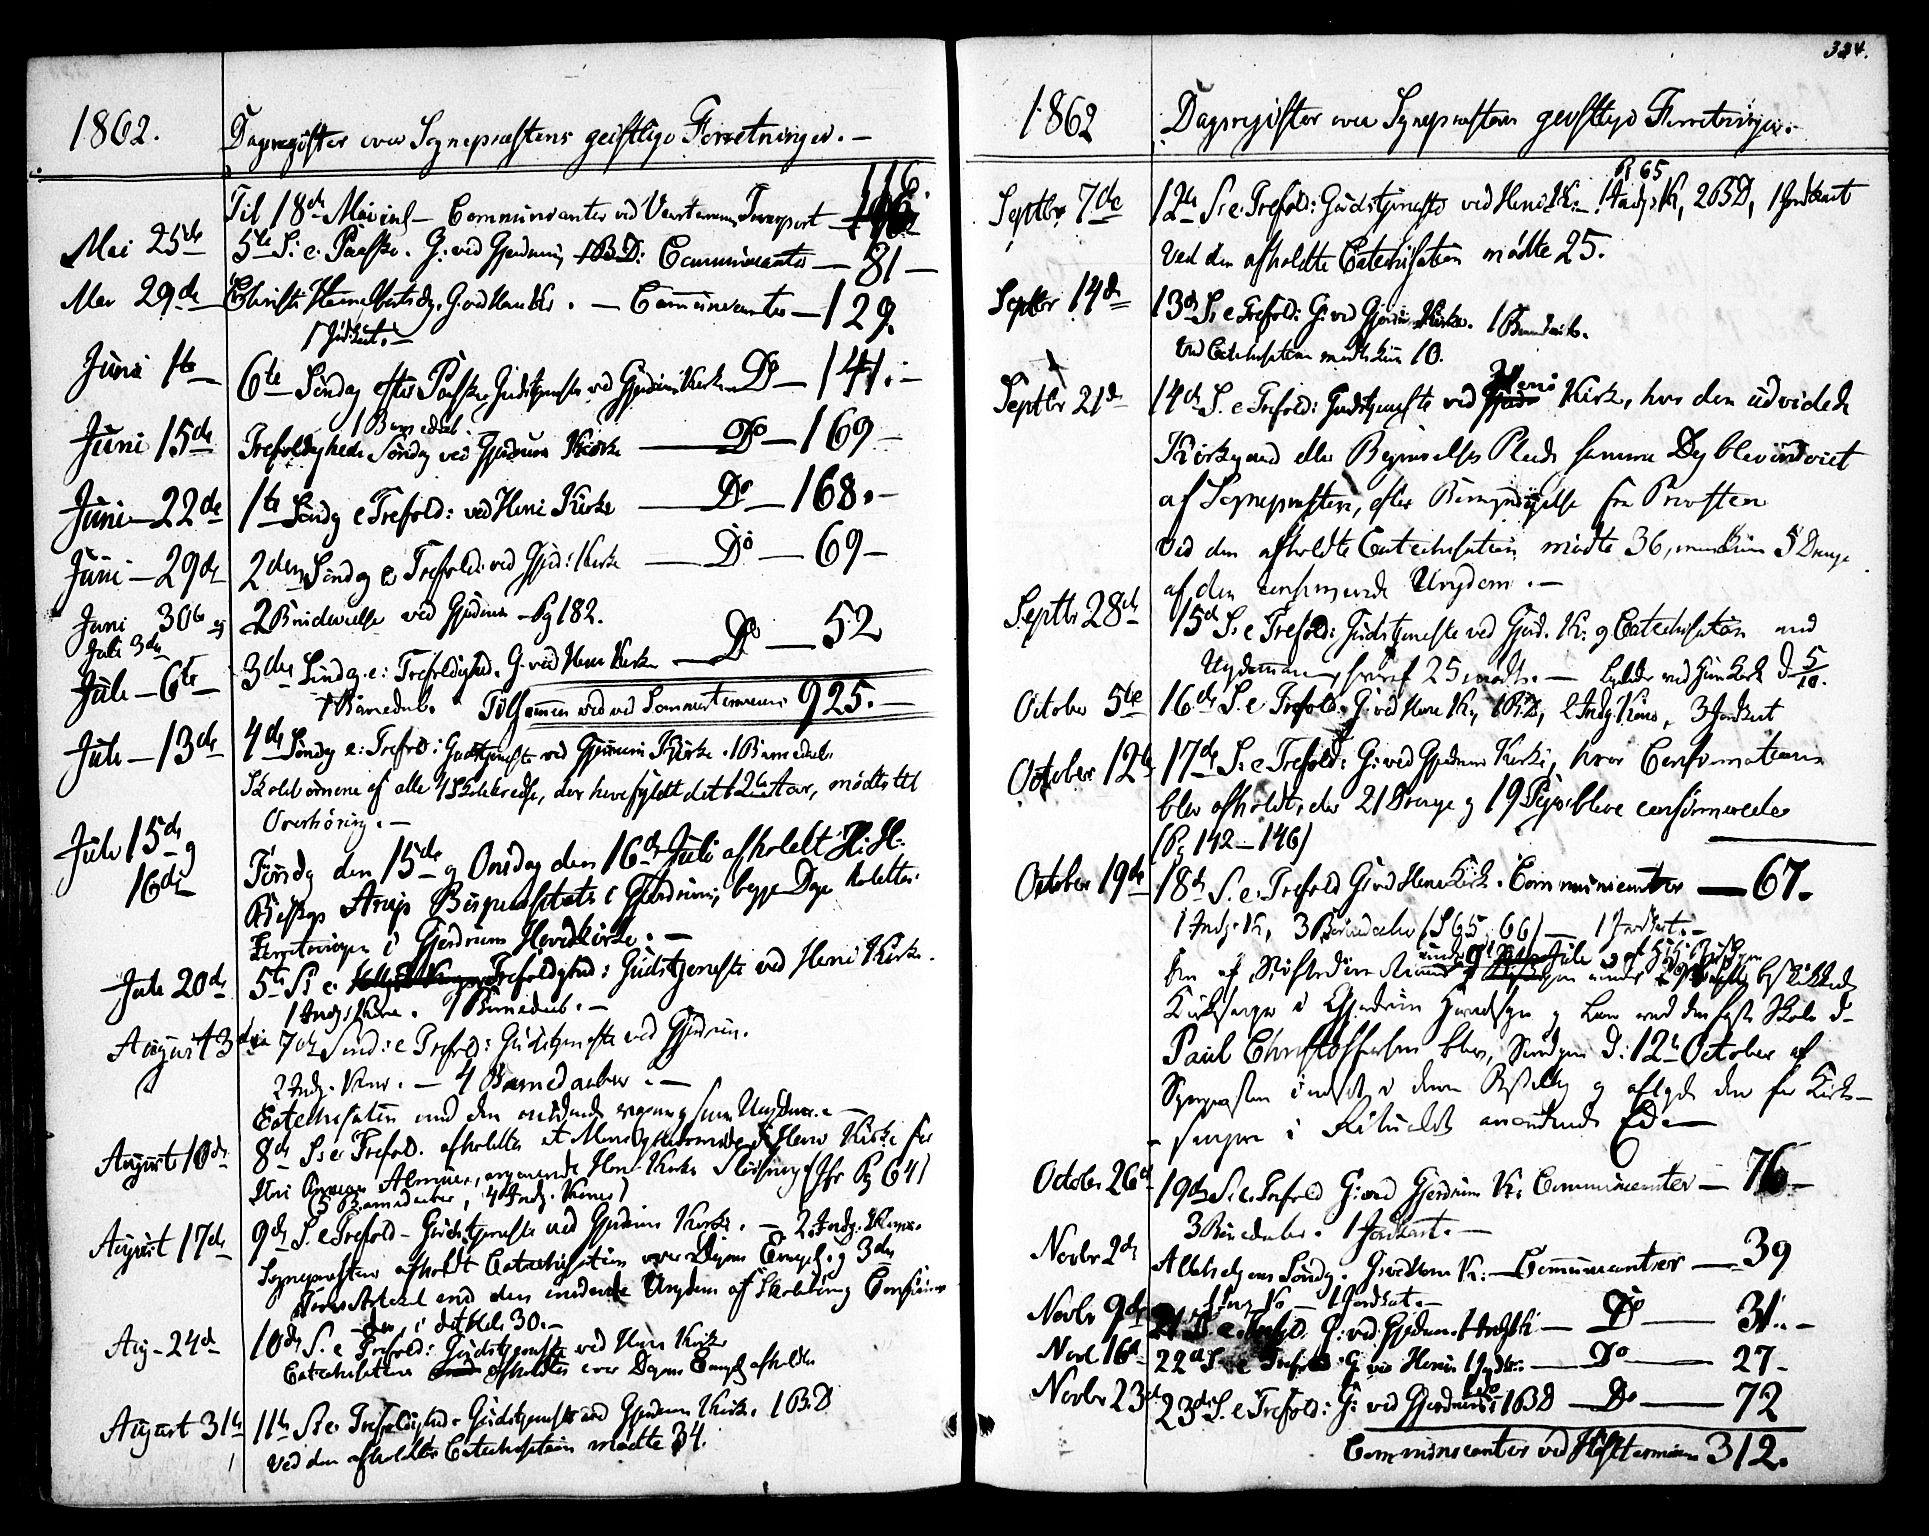 1862. Dagregister over Sognepræstens geistlige Forretninger. —
Til 18de Mai incl — Communicanter ved Vaarterminen Transport — 116.
Mai 25de 5te S: e: Paaske. G: ved Gjerdrum, 1 B. D: Communicanter — 81 —
Mai 29de Christi Himmelfartsdg. G. ved Heni K: . — Communicanter — 129.
1 Jordkast. —
Juni 1te 6te Søndag efter Paaske, Gudstjeneste ved Gjerdrum Kirke Do — 141. —
1 Barnedaab
Juni 15de Trefoldigheds Søndag ved Gjerdrum Kirke — Do — 169 —
Juni — 22de 1te Søndg e Trefold: ved Heni Kirke — Do — 168. —
Juni — 29de 2den Søndag e Trefold: ved Gjed: Kirke — Do — 69 —
Juni 30te og 2 Brudevielse ved Gjerdrum — Pg 182.
Juli 3die
Juli — 6te — 3die Søndag. e: Trefoldighed. G. ved Heni Kirke — Do — 52
1 Barnedaab. Tilsammen ved Sommerterminen 925. —
Juli — 13de 4de Søndag e: Trefold: Gudstjeneste ved Gjerdrum Kirke. 1 Barnedaab.
Skolebørnene af alle 4 Skolekredse, der havefyldt det 12te Aar, mødte til
Overhøring. —
Juli 15de og Tirsdg den 15de og Onsdag den 16de Juli afholdt H: H:
16de Biskop Arup Bispevisitats i Gjerdrum, begge Dage holdtes
Forretningen i Gjerdrums Hovedkirke. —
Juli 20de 5te S: e: Trefoldighed: Gudstjeneste ved Heni Kirke.
1 Indg: Kone. 1 Barnedaab. —
August 3die 7de Sønd: e Trefold: Gudstjeneste ved Gjerdrum.
2 Indg. Koner. — 4 Barnedaaber. —
Catechisation med den
August 10de 8de S: e: Trefold. afholdtes et i Heni Kirke for
Heni Almue, angaaende Heni Kirkes (Jfr Pg 64)
(5 Barnedaaber, 4 Indg. Koner)
August 17de 9de S. e Trefold — Gudstjeneste ved Gjerdrum Kirke. — 2 Indg. Koner.
Sognepræsten afholdt Catechisation over Dagens Evangel. og 3die
Troes Artikel med den Ungdom af
der, i detHele 30. —
Aug — 24de 10de S. e Trefold: Gudstjeneste ved Heni Kirke
Catechisation afholdtes over Dagens Evangl afholdes
August 31te 11te S: e: Trefoldighed. Gudstjeneste ved Gjerdrum Kirke. 1 B. D
Ved den afholdte Catechisation mødte 34.
334.
1862 Dagregister over Sognepræstens geistlige Forretninger. —
Pg 65
Septbr 7de 12te S: e: Trefold: Gudstjeneste ved Heni K: — 1 Indg: K, 2 B D, 1 Jordkast
Ved den afholdte Catechisation mødte 25.
Septbr 14de 13de S: e Trefold: G: ved Gjerdrum Kirke. 1 Barnedaab.
Ved Catechisation mødte kun 10.
Septbr 21de 14de S. e Trefold: Gudstjeneste ved Heni Kirke, hvor den udvidede
Kirkegaard eller Begravelses Plads samme Dg blev indviet
af Sognepræsten, efter Bemyndigelse fra Provsten
Ved den afholdte Catechisation mødte 36, men kun 5 Drenge
af den confirmerede Ungdom. —
Septbr 28de 15de S: e Trefold: Gudstjeneste ved Gjed. K: og Catechisation med
Ungdommen, hvoraf 25 mødte. — D 5/10.
October 5te 16de S. e Trefold: G: ved Heni K:, 1 B: D, 2 Indg. Koner, 3 Jordkast
October 12te 17de S: e Trefold: G: ved Gjerdrum Kirke, hvor Confirmationen
blev afholdt, der 21 Drenge og 19 Piger bleve confirmerede
(Pg 142 — 146)
October 19de 18de S. e: Trefold G: ved Heni Kirke. Communicanter — 67.
1 Indg: K, 3 Barnedaaber (Pg 65, 66) — 1 Jordkast. —
Den af Stiftsdirectionen under 9de Juli af H: H: Biskopen beskikkede
Kirkesanger i Gjerdrum Hovedsogn og Lærer ved den faste Skole
Paul Christophersen blev, Søndagen D: 12te October af
Sognepræsten indsat i denne Bestilling og aflagde den for Kirke-
sangere i Ritualet anordnede Ed. —
October 26de 19de S: e. Trefold G: ved Gjerdrum K: Communicanter — 76 —
3 Barnedaaber. 1 Jordkast. —
Novbr 2de Allehelgens Søndg. G: ved Heni K: — Communicanter — 39
1 Indg K — 1 Jordkast. —
Novbr 9de 21de S. e. Trefold. G: ved Gjerdrum. 1 Indg: K — Do — 31. —
Nov. 16de 22de S: e Trefold G: ved Heni — Do — 27 —
Novbr 23de 23de S. e Trefold: G: ved Gjerdrum Do — 72
Communicanter ved Høstterminen 312.